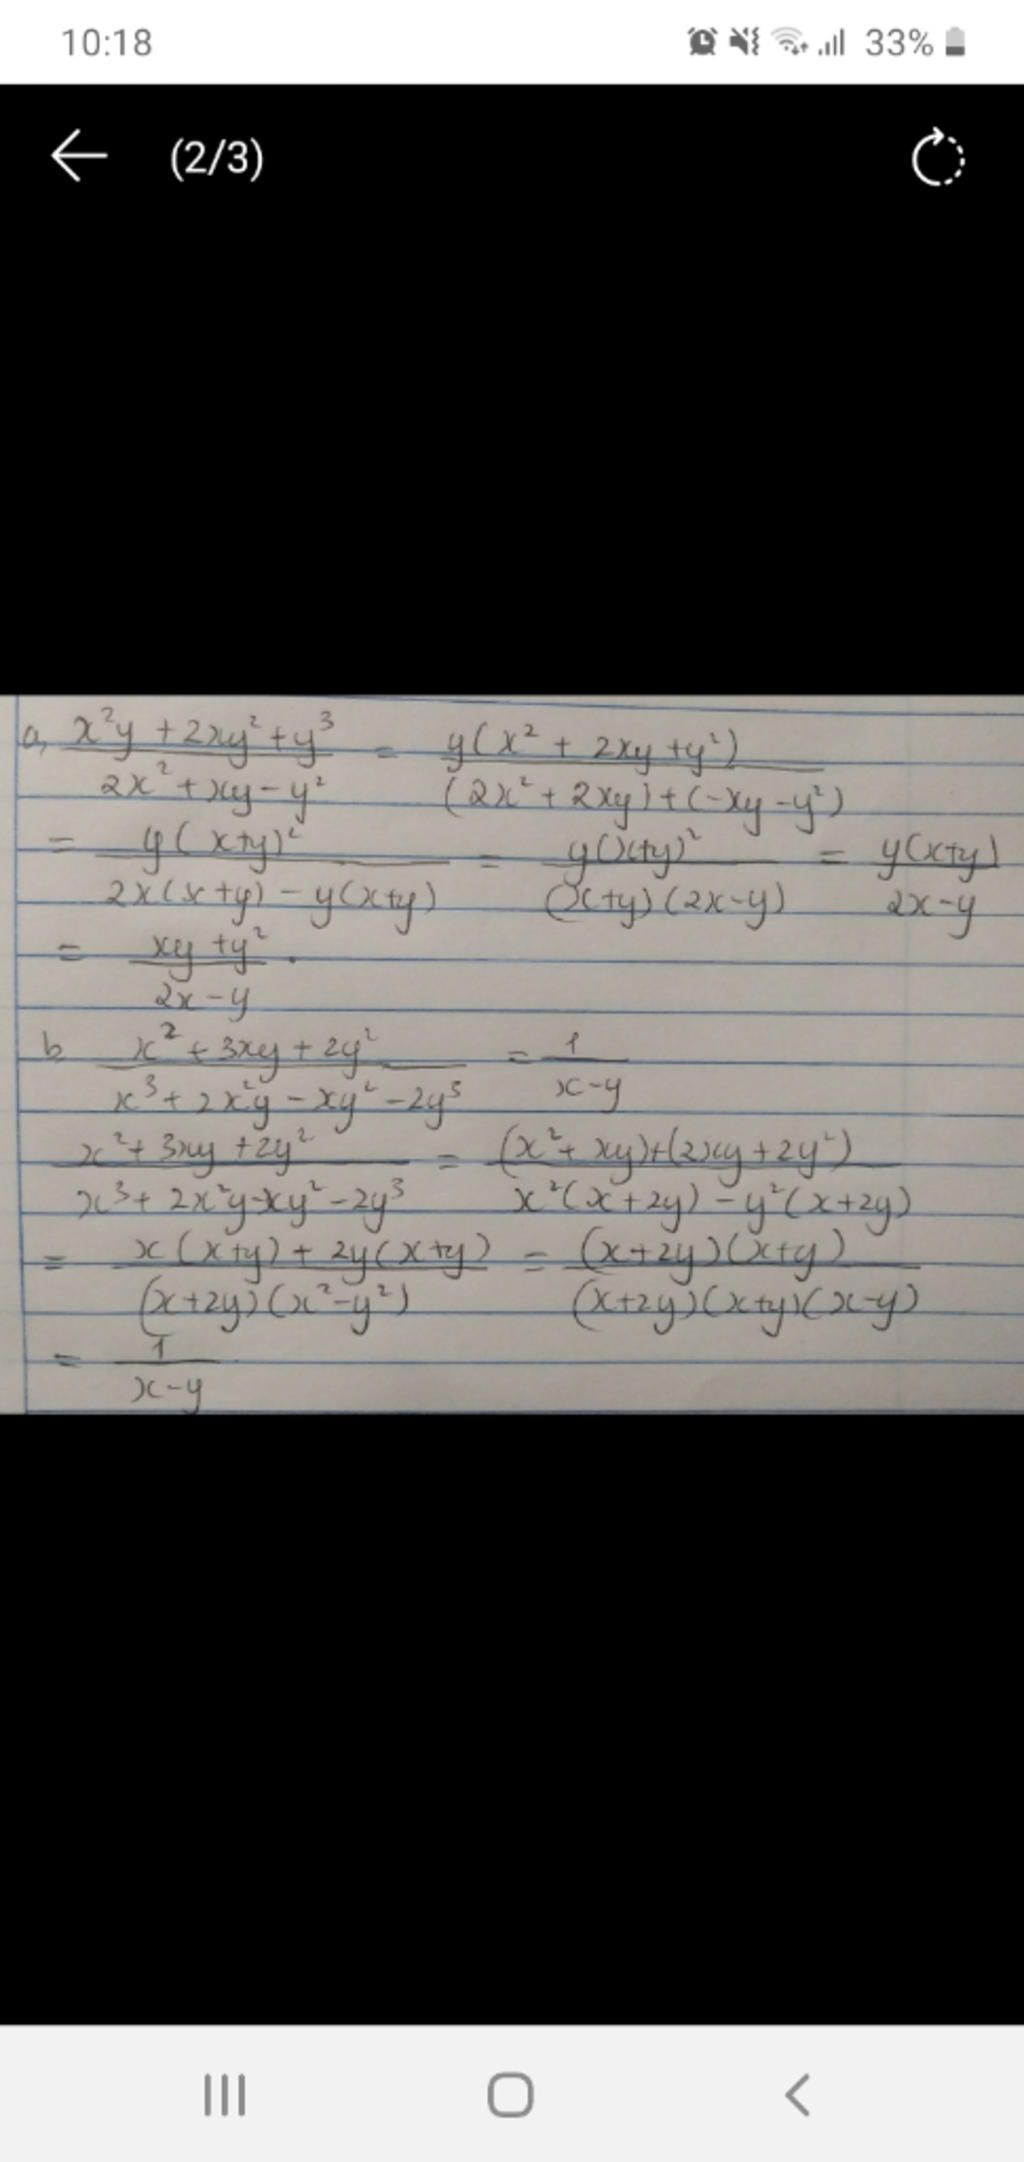 10:18 33%
(2/3)
a, x²y + 2xy² + y³ / 2x² + xy - y² = y(x² + 2xy + y²) / (2x² + 2xy) + (-xy - y²)
= y(x+y)² / 2x(x+y) - y(x+y) = y(x+y)² / (x+y)(2x-y) = y(x+y) / 2x-y
= xy + y² / 2x - y .
b x² + 3xy + 2y² / x³ + 2x²y - xy² - 2y³ = 1 / x-y
x² + 3xy + 2y² / x³ + 2x²y - xy² - 2y³ = (x² + xy) + (2xy + 2y²) / x²(x + 2y) - y²(x + 2y)
= x(x+y) + 2y(x+y) / (x+2y)(x²-y²) = (x+2y)(x+y) / (x+2y)(x+y)(x-y)
= 1 / x-y